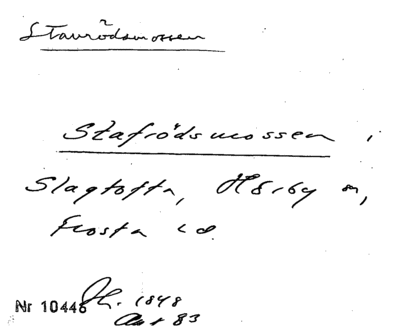 Stavrödsmossen
Stafrödsmossen i
Slagtofta, Hörby sn,
Frosta hd.
Nr 10446
1848
83